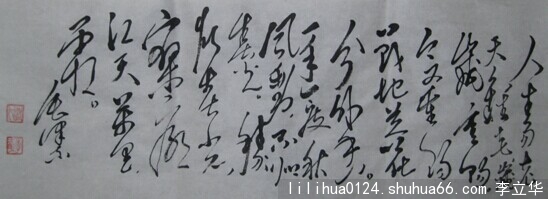 人生易老
天难老岁
岁重阳
今又重阳
战地黄花
分外香。
一年一度秋
风劲不似
春光胜
似春光
寥廓
江天万里
霜。
lilihua0124.shuhua66.com 李立华